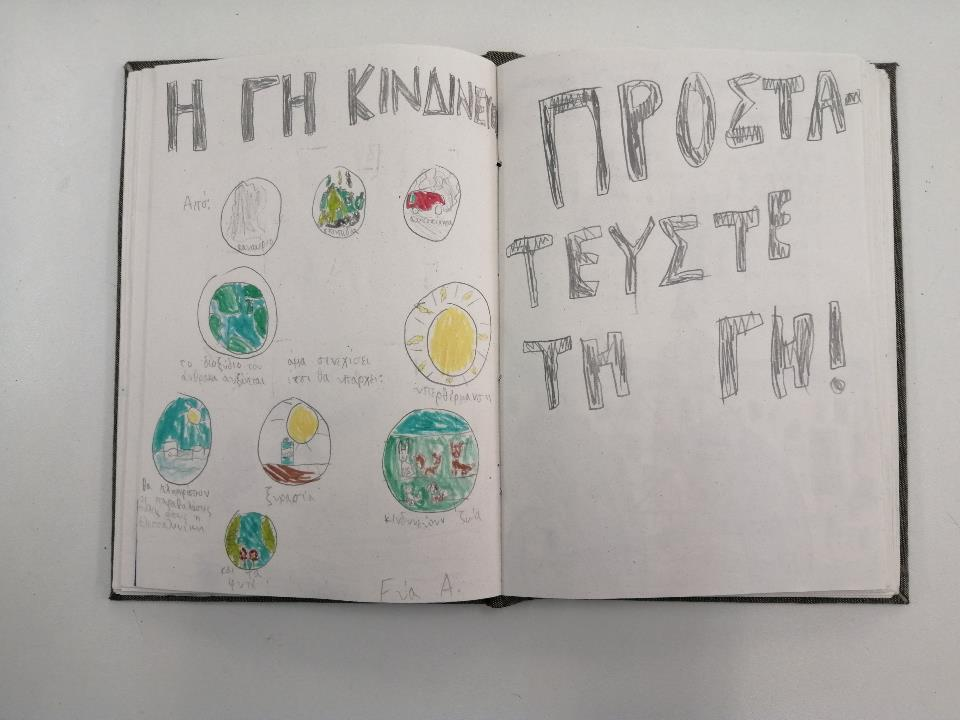 Η ΓΗ ΚΙΝΔΙΝΕΥΕΙ
Από:
σκουπίδια
το διοξύδιο του
άνθρακα αυξάνεται
άμα συνεχίσει
έτσι θα υπάρχει:
υπερθέρμανση
θα πλημμυρίσουν
οι παραθαλάσσιες
πόλεις όπως η
Θεσσαλονίκη
ξηρασία
κινδυνεύουν ζώα
και τα
φυτά
Εύα Α.
ΠΡΟΣΤΑ-
ΤΕΥΣΤΕ
ΤΗ ΓΗ!